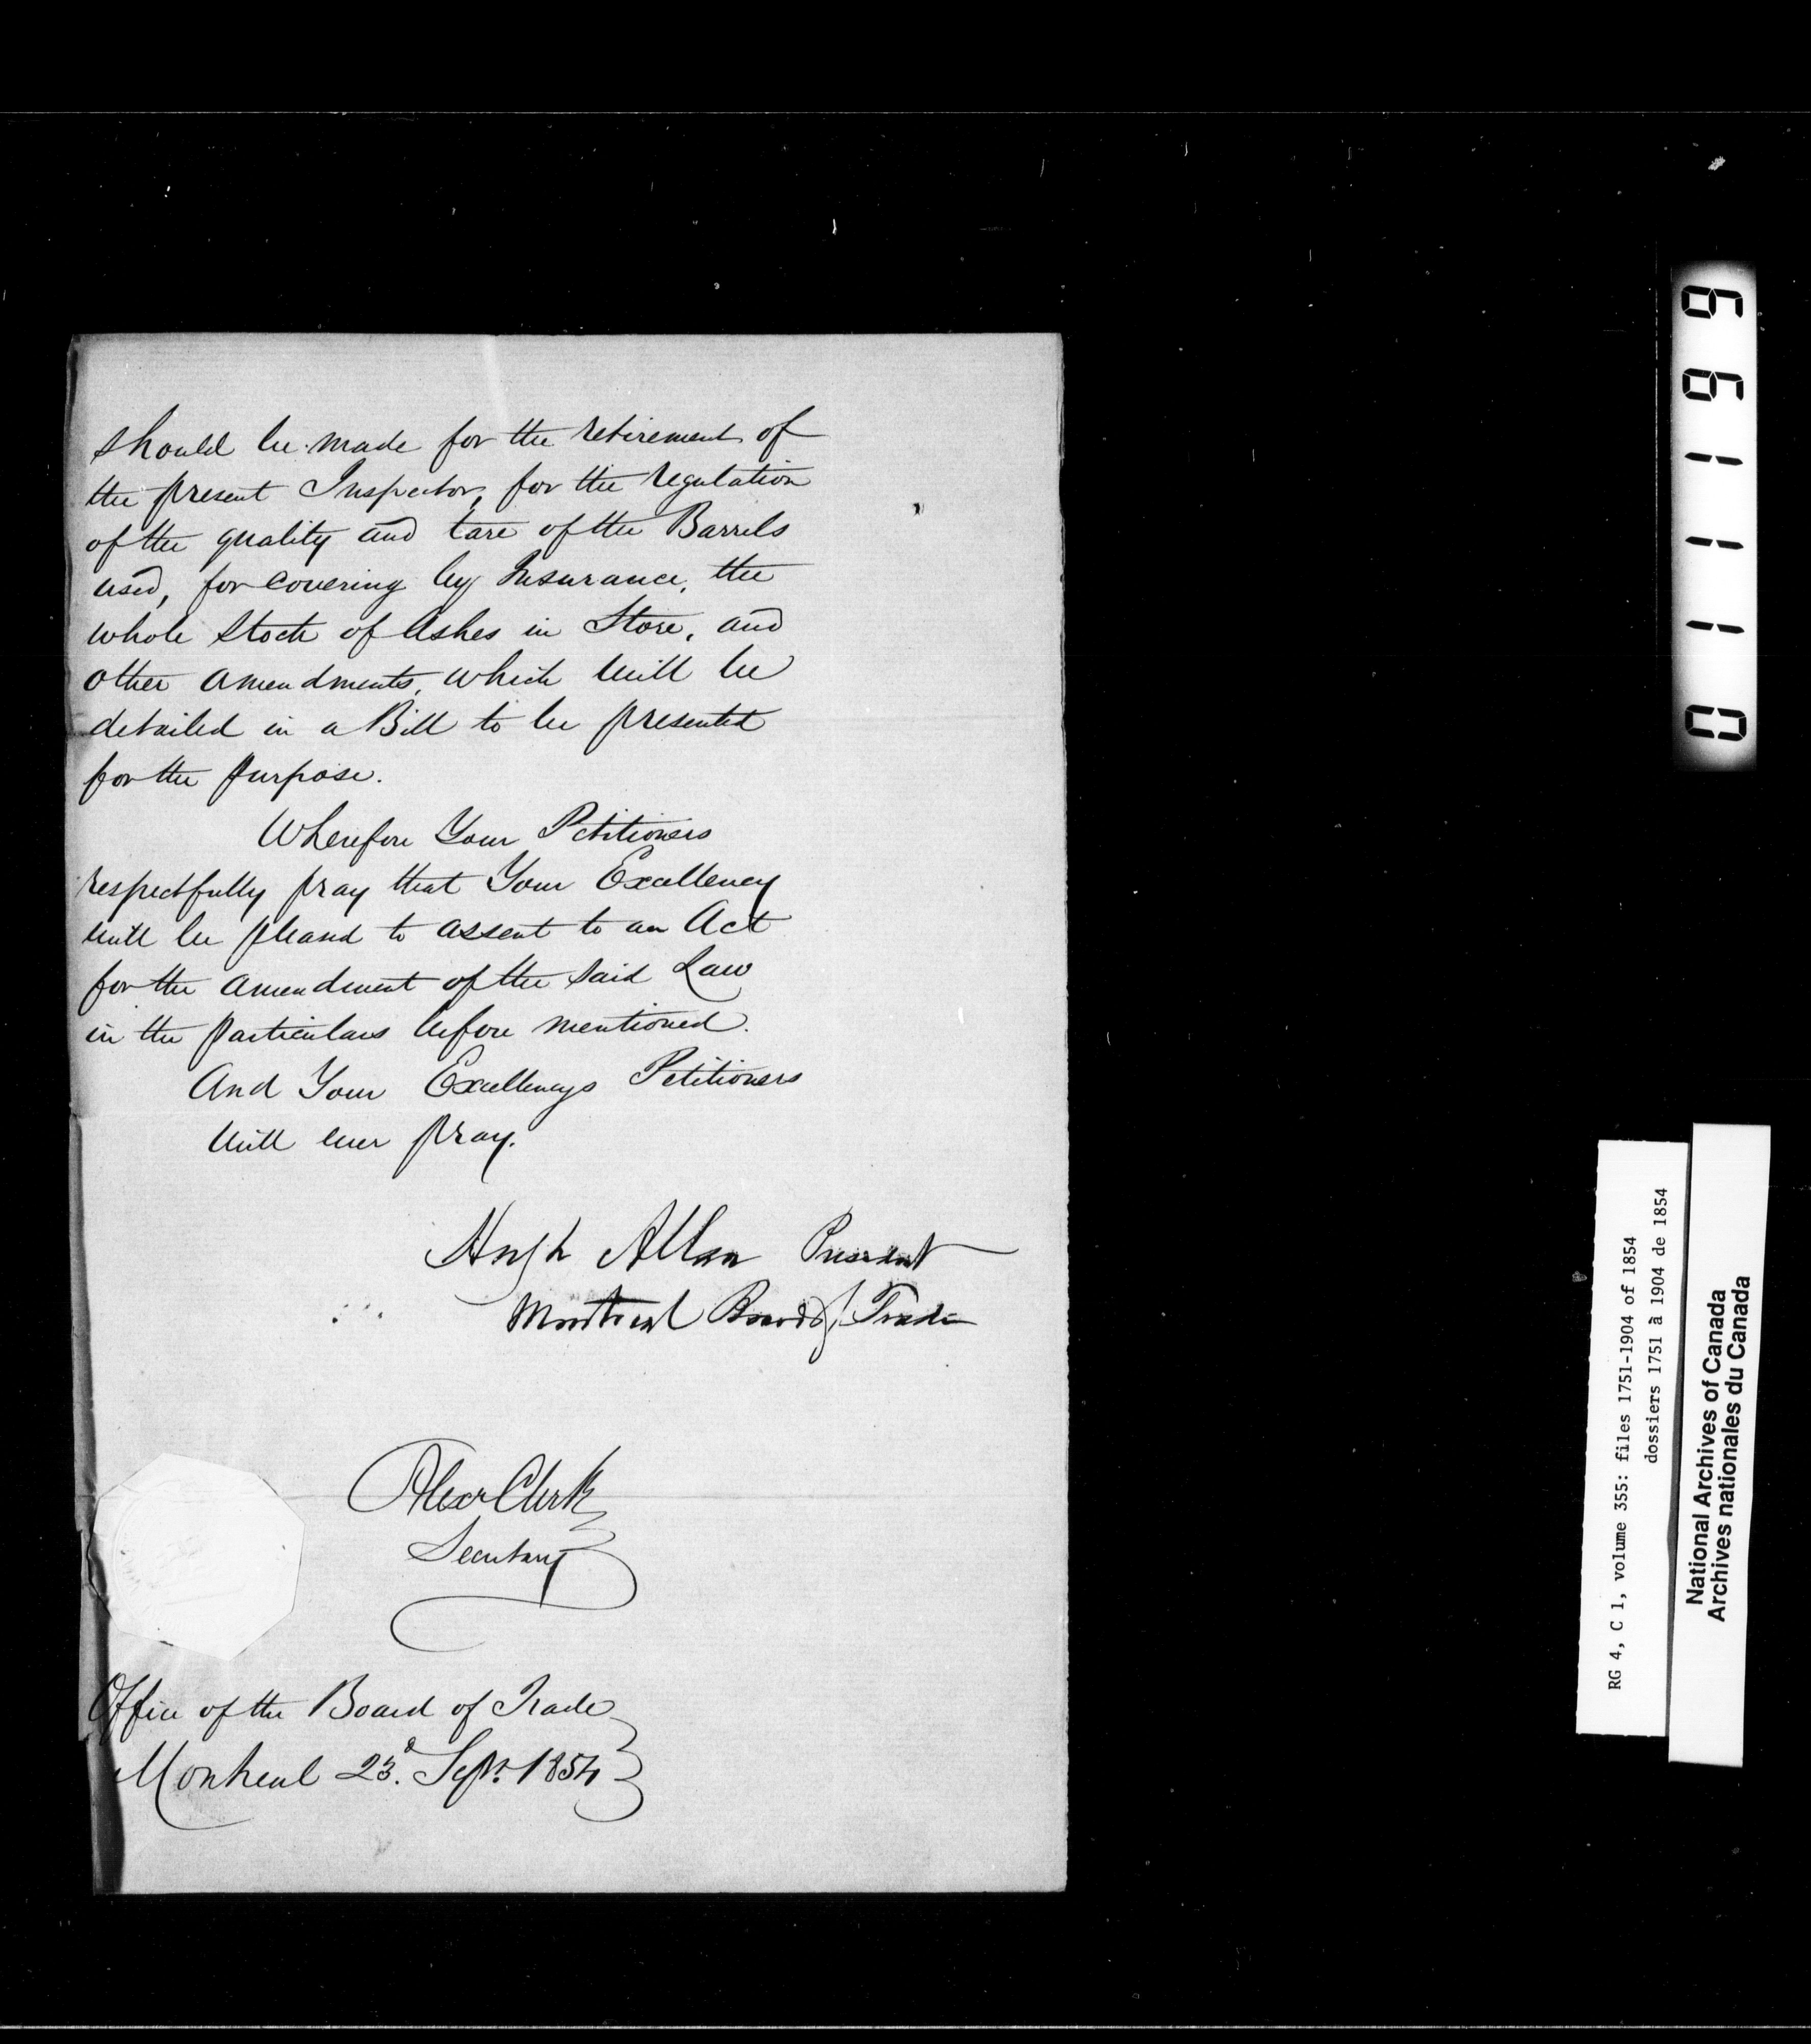 should be made for the retirement of
the present Inspector, for the regulation
of the quality and tare of the Barrels
used, for covering by Insurance, the
whole Stock of Ashes in Store, and
other amendments, which will be
detailed in a Bill to be presented
for the purpose.
Wherefore Your Petitioners
respectfully pray that Your Excellency
will be pleased to assent to an Act
for the amendment of the said Law
in the particulars before mentioned.
And Your Excellencys Petitioners
will ever pray.
Hugh Allan President
Montreal Board of Trade
Alexr Clerk
Secretary
Office of the Board of Trade
Montreal 23d. Sepr. 1854
011199
RG 4, C 1, volume 355: files 1751-1904 of 1854
dossiers 1751 à 1904 de 1854
National Archives of Canada
Archives nationales du Canada